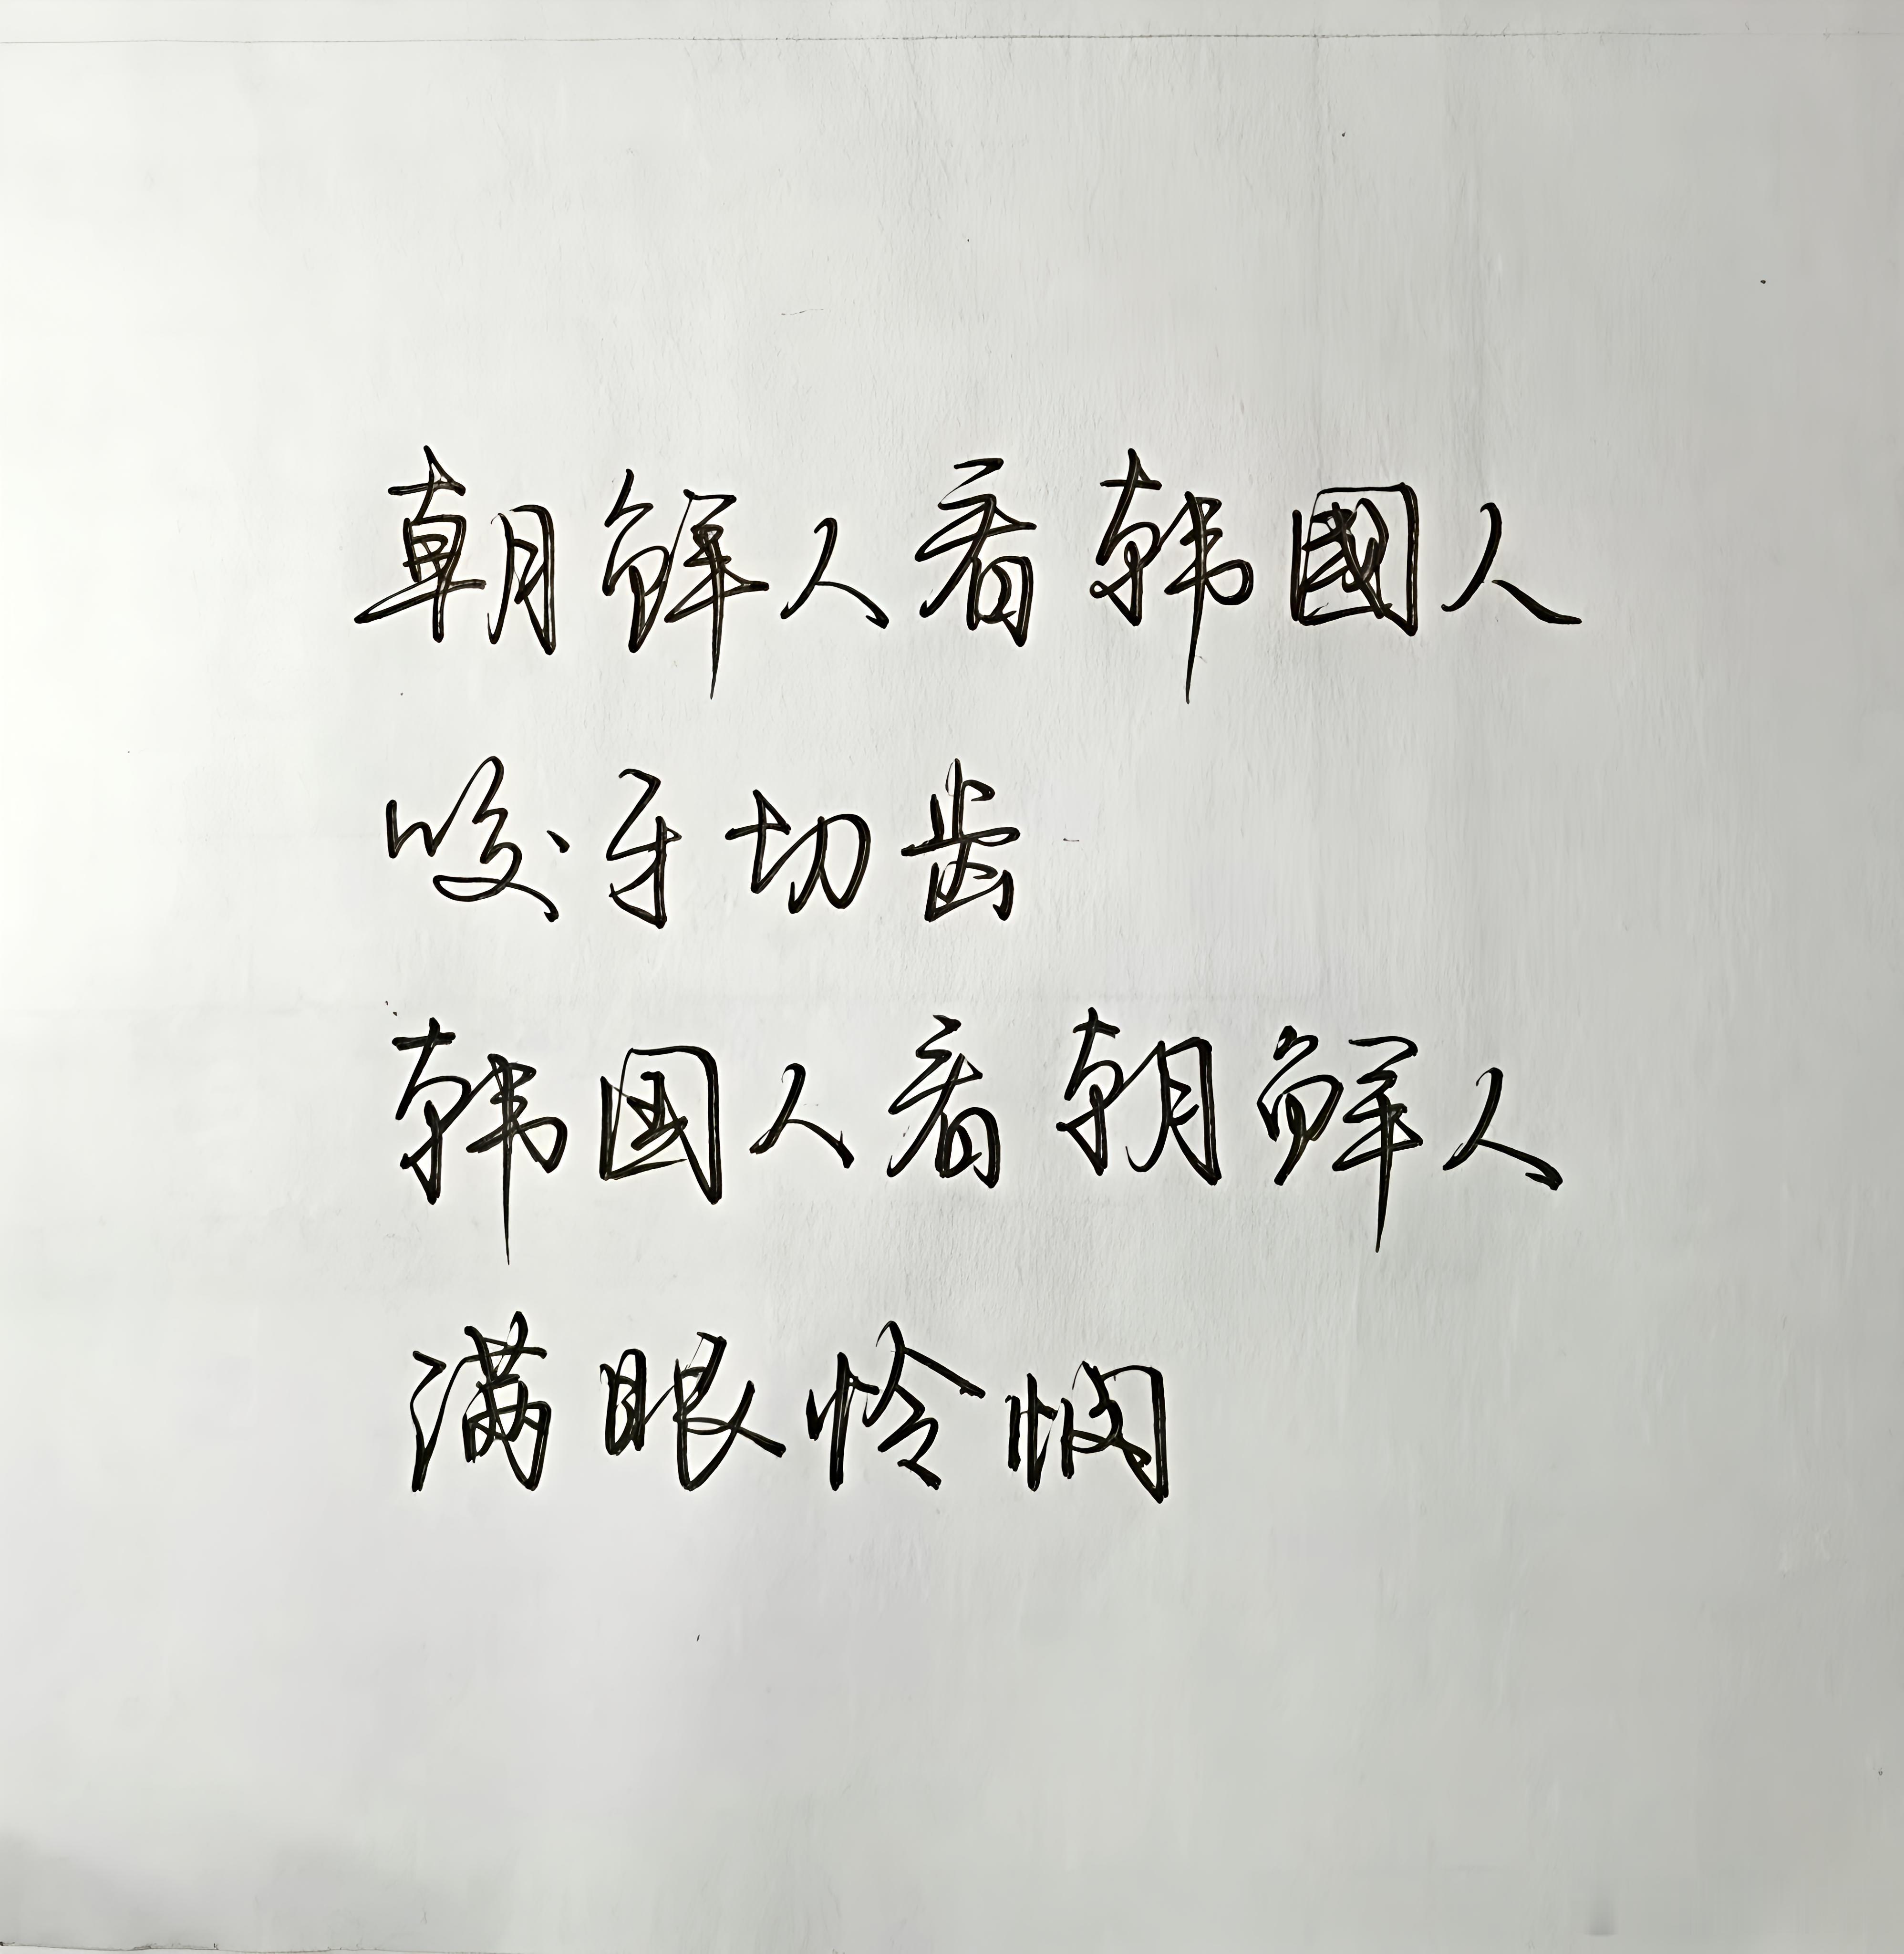 朝鲜人看韩國人
咬牙切齿
韩國人看朝鲜人
满眼怜悯